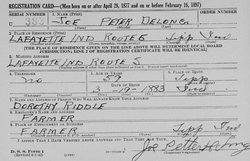 REGISTRATION CARD—(Men born on or after April 28, 1877 and on or before February 16, 1897)
SERIAL NUMBER 1. NAME (Print) ORDER NUMBER
U
JOE PETER DELONG
2. PLACE OF RESIDENCE (Print)
LAFAYETTE IND ROUTE 6 TIPP IND
(THE PLACE OF RESIDENCE GIVEN ON THE LINE ABOVE WILL DETERMINE LOCAL BOARD
JURISDICTION; LINE 2 OF REGISTRATION CERTIFICATE WILL BE IDENTICAL)
3. MAILING ADDRESS
LAFAYETTE IND ROUTE
4. TELEPHONE 5. AGE IN YEARS 6. PLACE OF BIRTH
NO TIPP
DATE OF BIRTH
1883 IND
7. NAME AND ADDRESS OF PERSON WHO WILL ALWAYS KNOW YOUR ADDRESS
DOROTHY RIDDLE
8. EMPLOYER'S NAME AND ADDRESS
FARMER
9. PLACE OF EMPLOYMENT OR BUSINESS
FARMER TIPP IND
I AFFIRM THAT I HAVE VERIFIED ABOVE ANSWERS AND THAT THEY ARE TRUE.
D. S. S. Form 1
Joe Peter